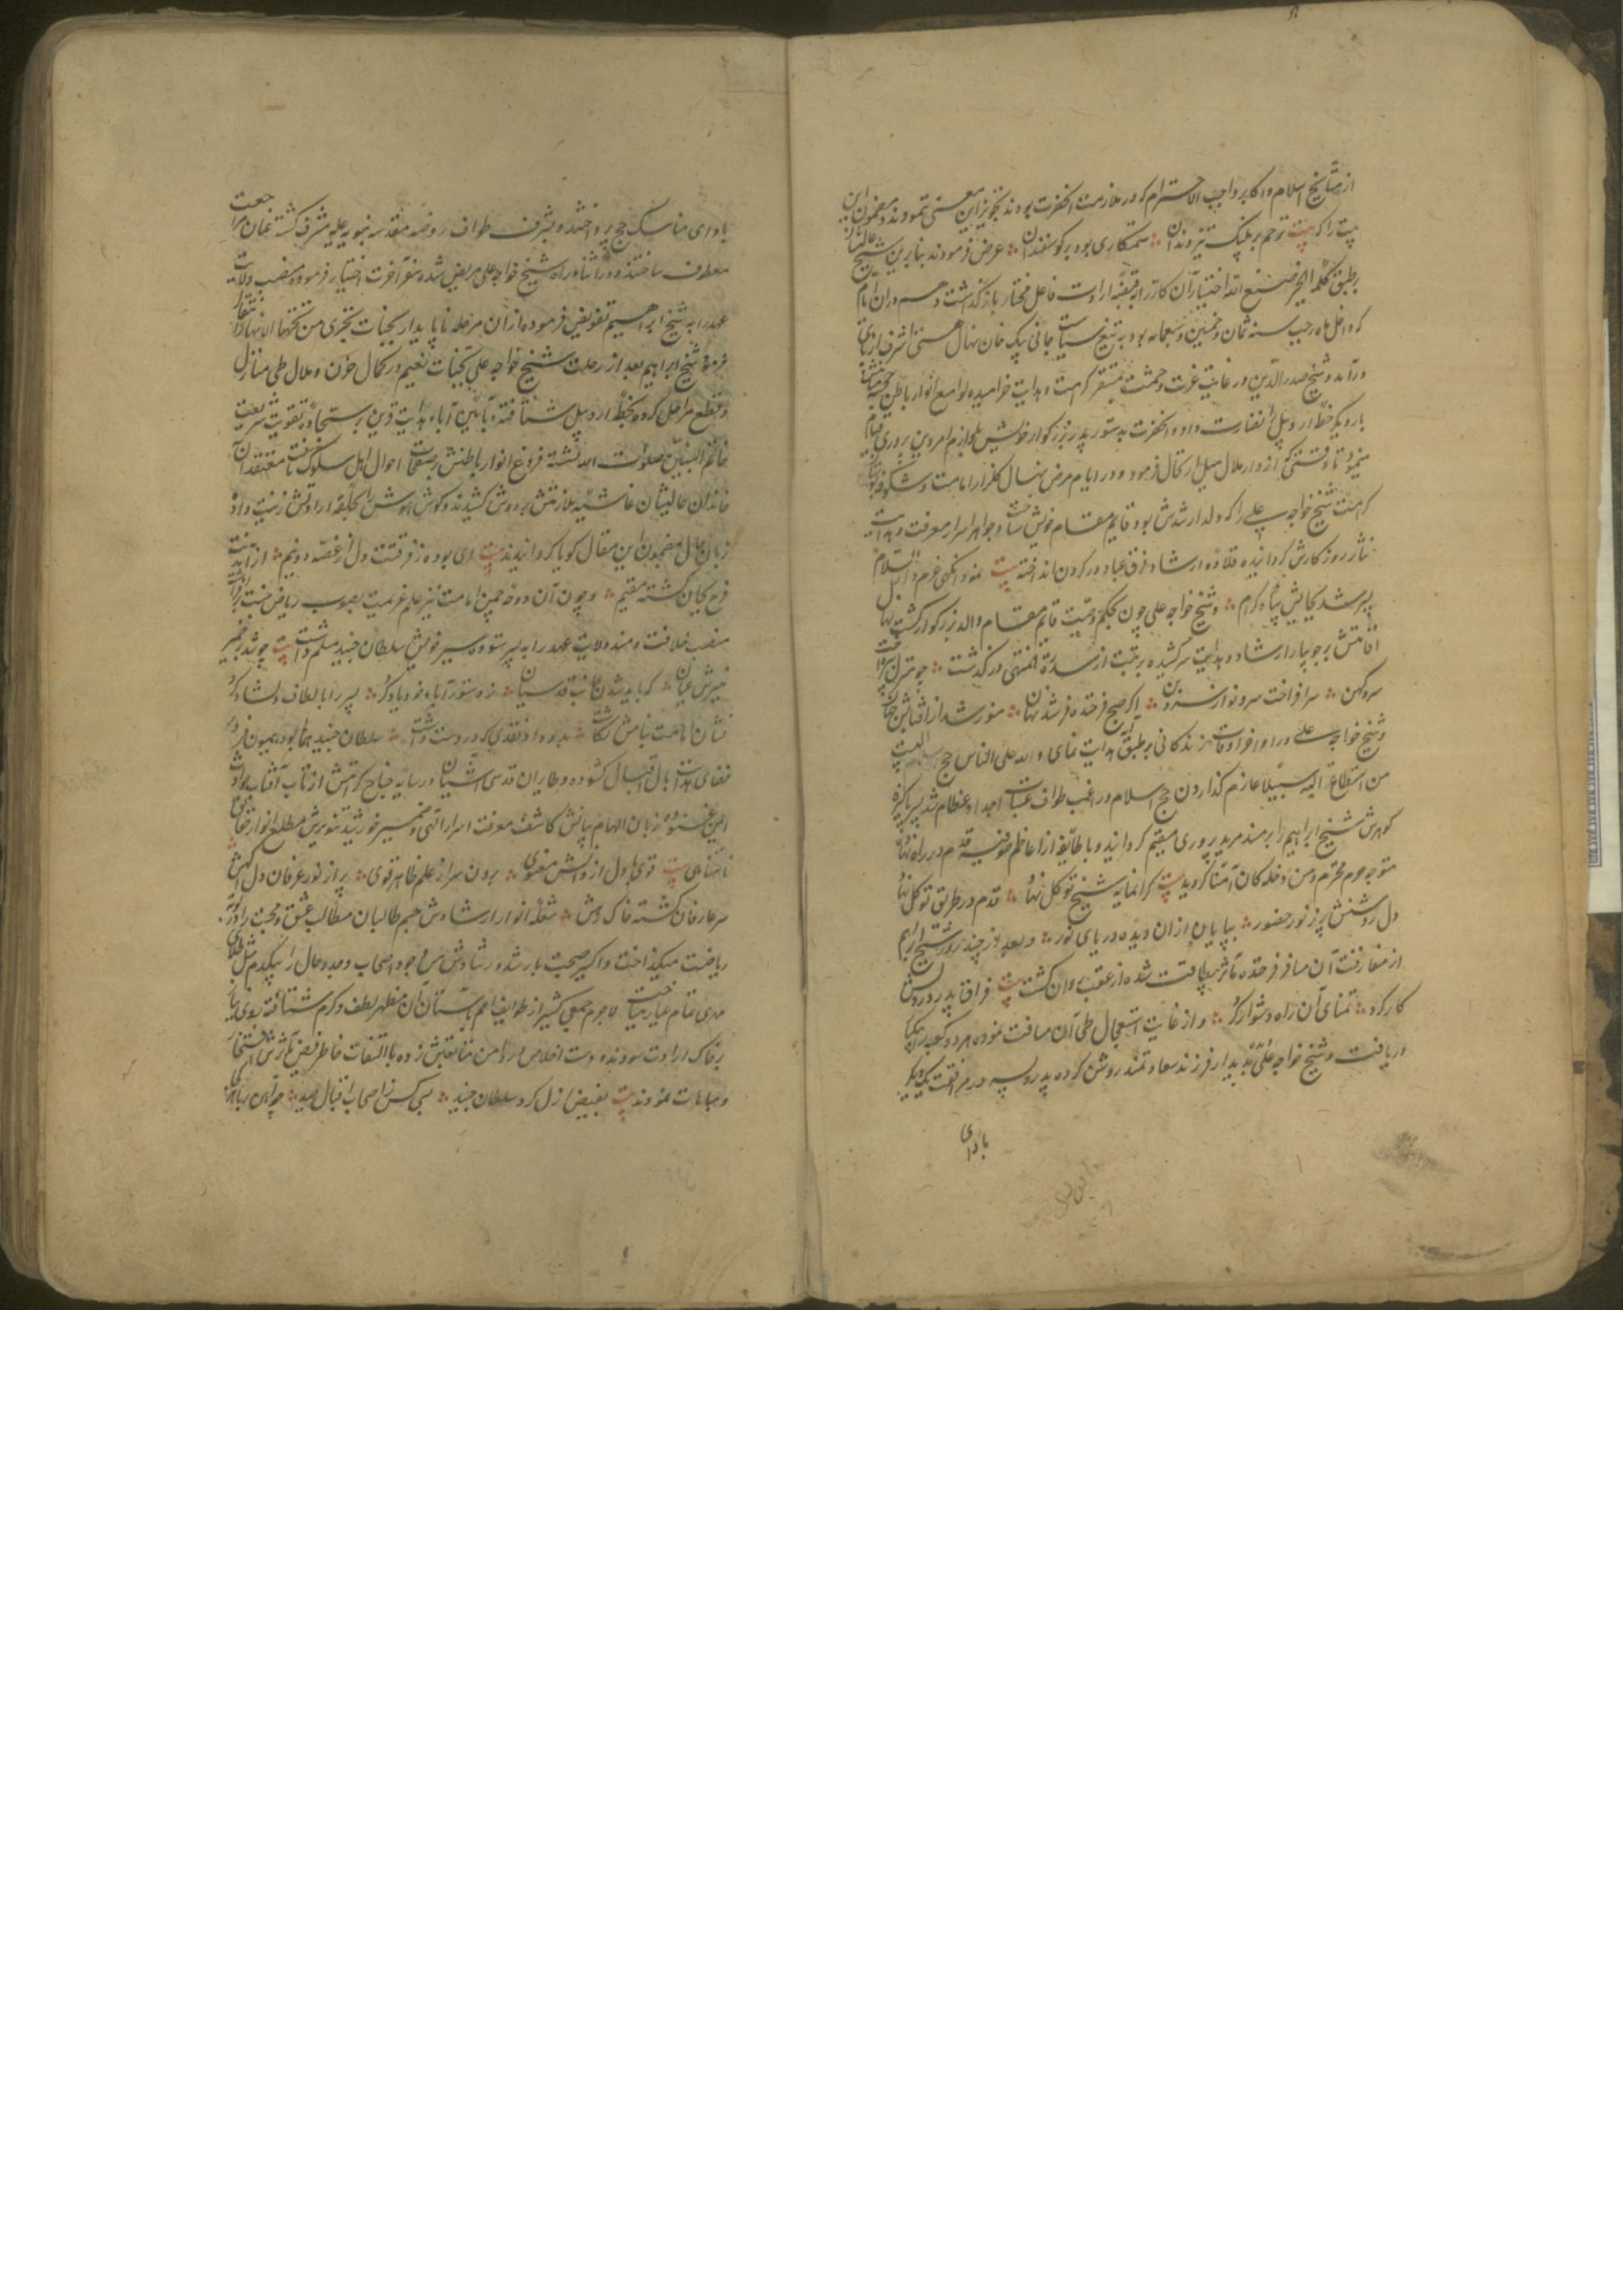 از مشایخ اسلام و اکابر واجب الاحترام که در ملازمت آنحضرت بودند تجویز این معنی ننمودند و مضمون این
بیت را که بیت ترحم بر پلنگ تیز دندان ستمکاری بود بر کوسفندان عرض فرمودند بنابرین شیخ عالیشان
بر طبق کلمه الخیر فی صنع الله اختیار آن کار را بقبضه ارادت فاعل مختار باز گذاشت و هم در آن ایام
که داخل ماه رجب سنه ثمان و خمسین و سبعمائه بود به تیغ سیاست جانی بیک خان نهال هستی اشرف از پای
در آمد و شیخ صدر الدین در غایت عزت و حشمت بمستقر کرامت و هدایت خرامیده لوامع انوار باطن
بار دیگر خطه اردبیل را نضارت داد و آنحضرت بدستور پدر بزرگوار خویش بلوازم امر دین پروری قیام
مینمود تا وقتی که از دار ملال میل ارتحال فرمود و در ایام مرض نهال گلزار امامت و شکوفه
کرامت شیخ خواجه علی را که ولد ارشدش بود قایم مقام خویش ساخت و جواهر اسرار معرفت و هدایت
نثار روزگارش گردانیده قلاده ارشاد فرق عباد در گردن انداخته بیت
پسر شد بجایش پناه کرام و شیخ خواجه علی چون بحکم وصیت قایم مقام والد بزرگوار گشت نهال
اقامتش بر جویبار ارشاد و هدایت سر کشیده برتبت از سدرة المنتهی در گذشت
سرو کهن سر افراخت سرو نو از سرو بن اگر صبح فرخنده فر شد نهان منور شد از آفتابش جهان
و شیخ خواجه علی در اواخر اوقات زندگانی بر طبق آیه هدایت نمای و لله علی الناس حج البیت
من استطاع الیه سبیلا عازم گذاردن حج اسلام و راغب طواف عتبات اجداد عظام شد پسر پاکیزه
گوهرش شیخ ابراهیم را بر مسند مرید پروری مقیم گردانید و با طایفه از اعاظم صوفیه قدم در راه نهاد
متوجه حرم محترم و من دخله کان آمنا گردید بیت گرانمایه شیخ توکل نهاد قدم در طریق توکل نهاد
دل روشنش پر ز نور حضور بپایان از آن دیده دریای نور و بعد از چند روز شیخ ابراهیم
از مفارقت آن مسافر فرخنده مآثر بیطاقت شده از عقب روان گشت بیت فراق پدر در دلش
کار کرد تمنای آن راه دشوار کرد و از غایت استعجال طی آن مسافت نموده
دریافت و شیخ خواجه علی بدیدار فرزند سعادتمند روشن کرده پدر و پسر در مرافقت یکدیگر
بادای
بادای مناسک حج پرداختند و بشرف طواف روضه مقدسه نبویه علیه مشرف گشته عنان مراجعت
معطوف ساختند و در اثناء راه شیخ خواجه علی مریض شده سفر آخرت اختیار فرمود و منصب ولایت
عهد را به شیخ ابراهیم تفویض فرموده از آن مرحله ناپایدار بجنات تجری من تحتها الانهار انتقال
فرمود و شیخ ابراهیم بعد از رحلت شیخ خواجه علی بجنات نعیم در کمال حزن و ملال طی منازل
و قطع مراحل کرده بخطه اردبیل شتافته و بآیین آباء هدایت قرین بر سجاده تقویت شریعت
خاتم النبیین صلوات الله نشسته فروغ انوار باطنش بر صفحات احوال اهل سلوک تافت معتقدان آن
خاندان عالیشان غاشیه ملازمتش بر دوش کشیدند و گوش هوش را بحلقه ارادتش زینت داده
زبان حال بمضمون این مقال گویا گردانیدند بیت ای بوده ز فرقتت دل از غصه دو نیم
فرخ بجایت گشته مقیم و چون آن دوحه چمن امامت نیز علم عزیمت بصوب ریاض جنت
منصب خلافت و مسند ولایت عهد را به پسر ستوده سیر خویش سلطان جنید مسلم داشت بیت چو شد بر ضمیر
منیرش عیان که باید شدن جانب قدسیان ز دستور آباء خود یاد کرد پسر را بالطاف دلشاد کرد
نشان امامت بنامش نگاشت بدو داد نقدی که در دست داشت سلطان جنید همای بود همیون فر در
فضای هدایت بال اقبال گشوده و طایران قدسی آشیان در سایه جناح کرامتش از تاب آفتاب حوادث
ایمن غنوده زبان الهام بیانش کاشف معرفت اسرار الهی و ضمیر خورشید تنویرش مطلع انوار حقایق
نامتناهی بیت قوی دل از دانش معنوی برون سر از علم ظاهر قوی پر از نور عرفان دل
سر عارفان گشته خاک رهش شعله انوار ارشادش جسم طالبان مطالب عشق و محبت را در بوته
ریاضت میگداخت و اکسیر صحبت با رشد و رشادش مس وجود اصحاب وجد و حال را بیکدم مثل طلای
مهدی تمام عیار میساخت لاجرم جمعی کثیر از طوایف امم بآستان آن مظهر لطف و کرم شتافته روی نیاز
بر خاک ارادت سودند و دست اخلاص در دامن متابعتش زده با التفات خاطر فیض مآثرش افتخار
و مباهات نمودند بیت بفیض ازل کرد سلطان جنید بسی کس ز اصحاب اقبال صید